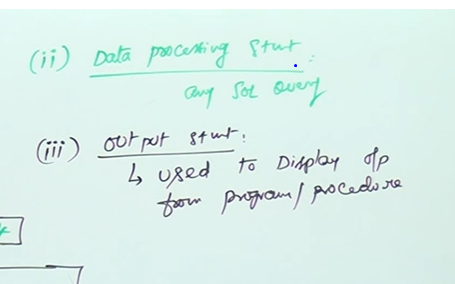 (ii) Data processing stmt:
any SQL Query
(iii) output stmt:
↳ used to Display o/p
from program/procedure